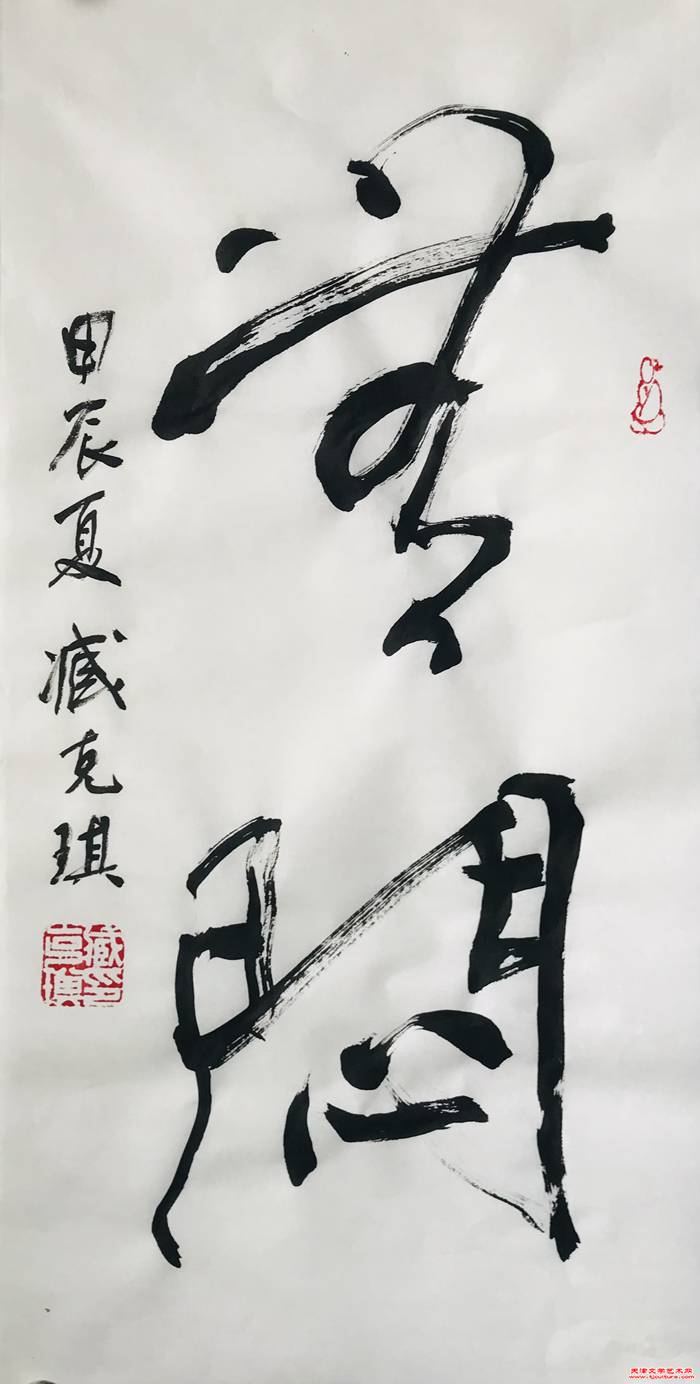 無悶
甲辰夏 臧克琪
天津文学艺术网
www.tjculture.com